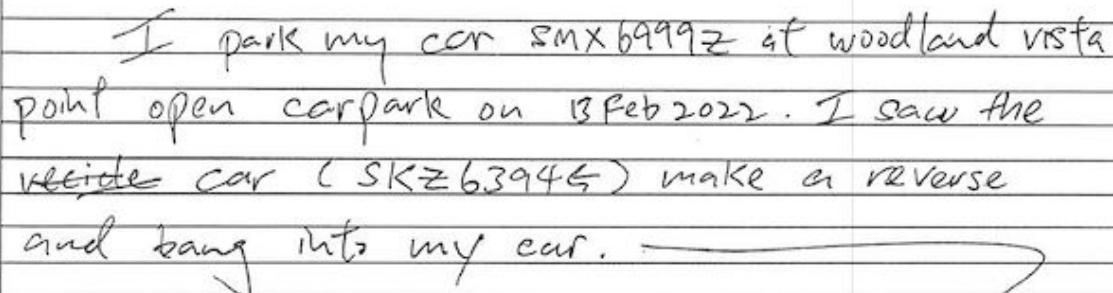 I park my car SMX6999Z at woodland vista
point open carpark on 13 Feb 2022. I saw the
car (SKZ6394G) make a reverse
and bang into my car.